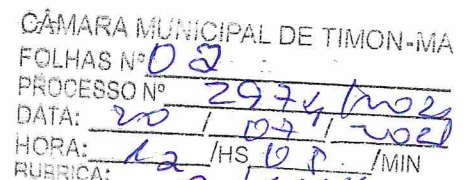 CÂMARA MUNICIPAL DE TIMON-MA
FOLHAS Nº 02
PROCESSO Nº 2974/2021
DATA: 20 / 07 / 2021
HORA: 12 /HS 08 /MIN
RUBRICA: